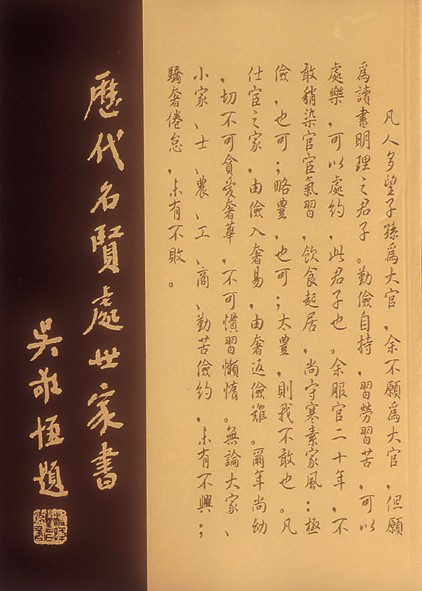 凡人多望子孫爲大官，余不願爲大官，但願
爲讀書明理之君子。勤儉自持，習勞習苦，可以
處樂，可以處約，此君子也。余服官二十年，不
敢稍染官宦氣習，飲食起居，尚守寒素家風：極
儉，也可；略豐，也可；太豐，則我不敢也。凡
仕宦之家，由儉入奢易，由奢返儉難。爾年尚幼
，切不可貪愛奢華，不可慣習懶惰。無論大家、
小家、士、農、工、商、勤苦儉約，未有不興；
驕奢倦怠，未有不敗。
歷代名賢處世家書
吳敬恆題